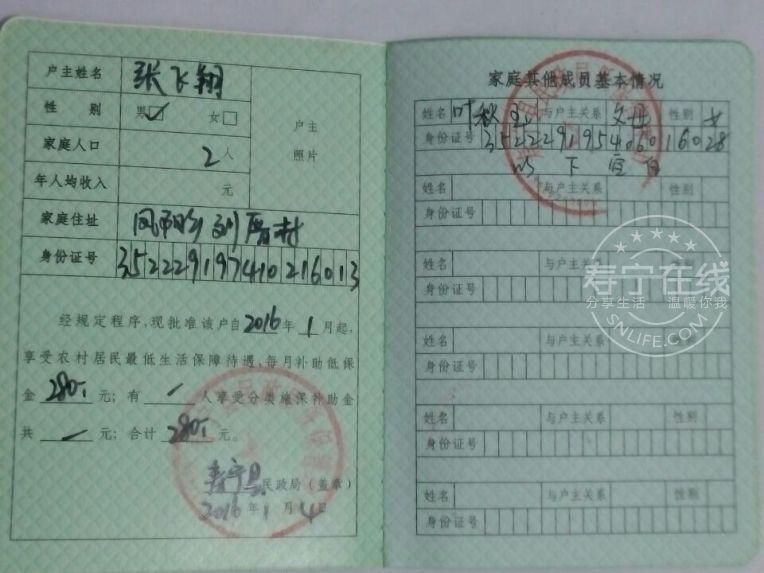 户主姓名 张飞翔
性别 男☑ 女□
家庭人口 2人
年人均收入 元
户主
照片
家庭住址 村
身份证号 352229197410216013
经规定程序,现批准该户自2016年1月起,
享受农村居民最低生活保障待遇,每月补助低保
金280.元;有/人享受分类施保补助金
共/元;合计280.元。
寿宁县民政局(盖章)
2016年1月4日
家庭其他成员基本情况
姓名 叶秋 与户主关系 父母 性别 女
身份证号 352229195406016028
以下空白
姓名 与户主关系 性别
身份证号
姓名 与户主关系 性别
身份证号
姓名 与户主关系 性别
身份证号
姓名 与户主关系 性别
身份证号
姓名 与户主关系 性别
身份证号
寿宁在线
分享生活 温暖你我
SNLIFE.COM